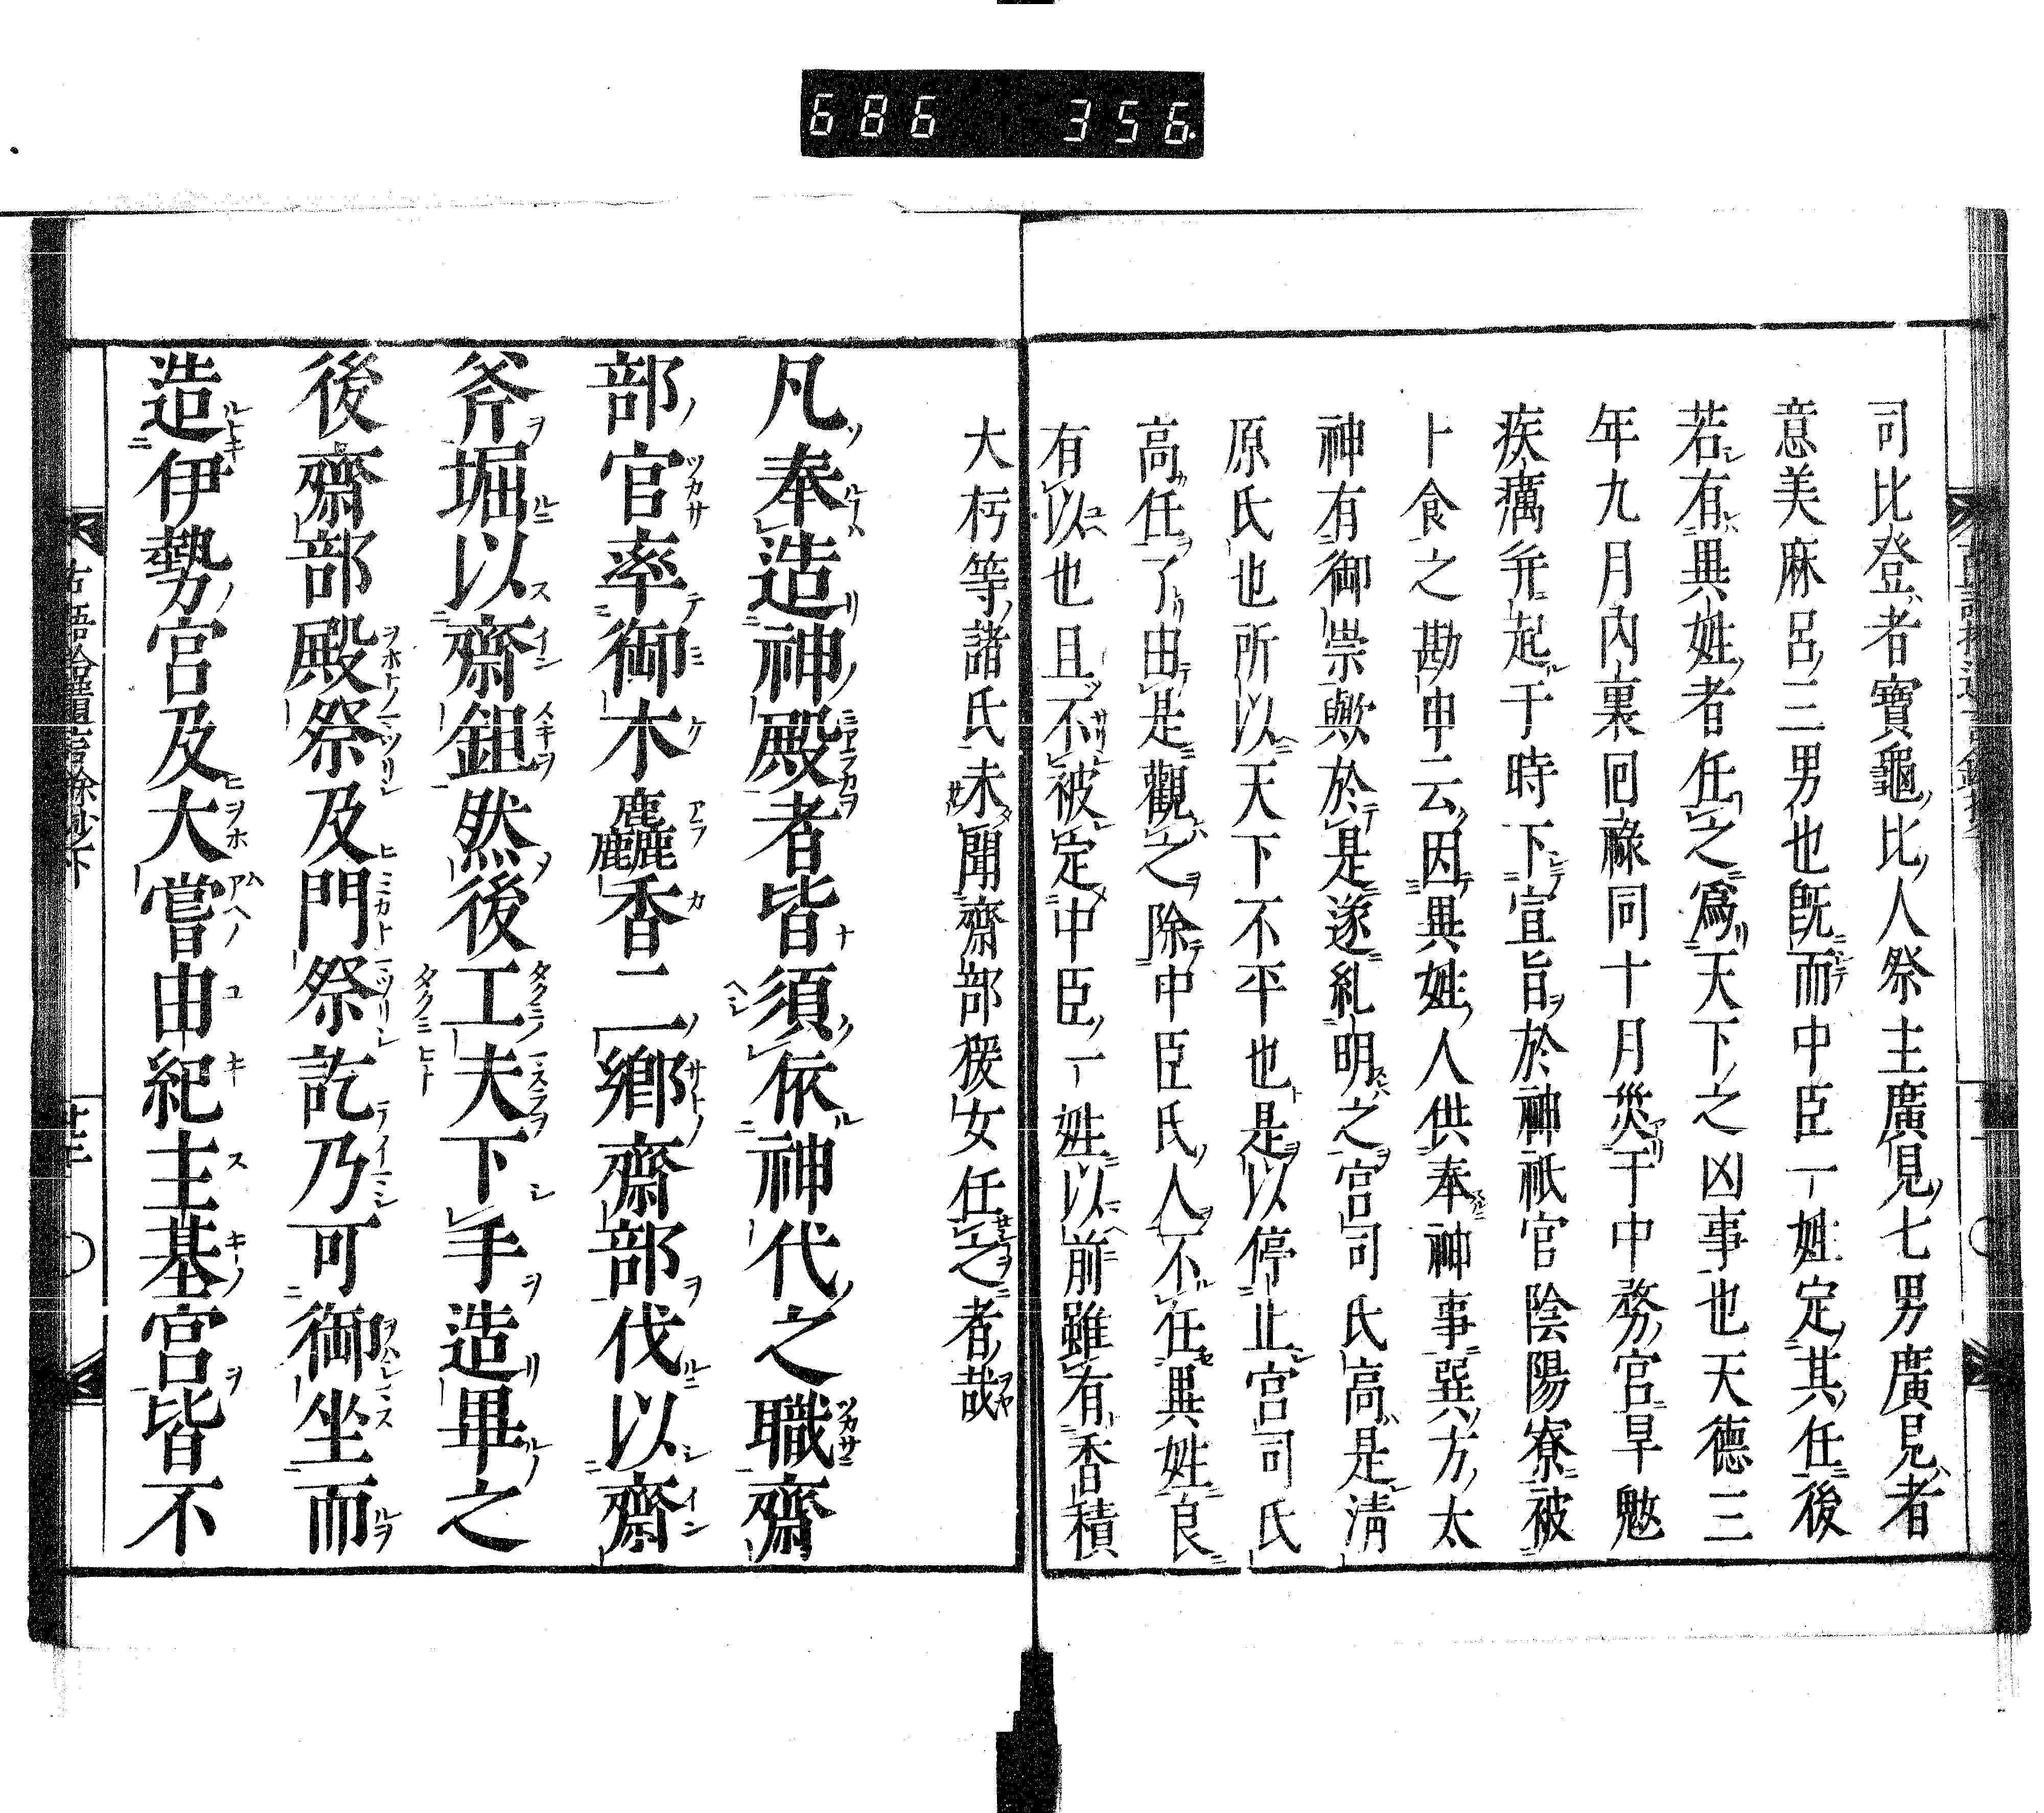 686 356.
司比登者寶龜比人祭主廣見七男廣見者
意美麻呂三男也既而中臣一姓定其任後
若有異姓者任之爲天下之凶事也天德三
年九月內裏回祿同十月災于中務官旱魃
疾癘并起于時下宣旨於神祇官陰陽寮被
卜食之勘申云因異姓人供奉神事巽方太
神有御祟歟於是遂糺明之宮司氏高是淸
原氏也所以天下不平也是以停止宮司氏
高任了由是觀之除中臣氏人不任異姓良
有以也且不被定中臣一姓以前雖有香積
大朽等諸氏未聞齋部猨女任之者哉
凡奉造神殿者皆須依神代之職齋
部官率御木麤香二鄉齋部伐以齋
斧堀以齋鉏然後工夫下手造畢之
後齋部殿祭及門祭訖乃可御坐而
造伊勢宮及大嘗由紀主基宮皆不
古語拾遺言餘抄下